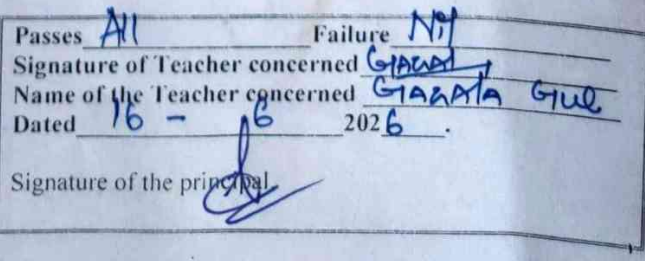 Passes All Failure Nil
Signature of Teacher concerned
Name of the Teacher concerned Gul
Dated 16 - 6 2026 .
Signature of the principal